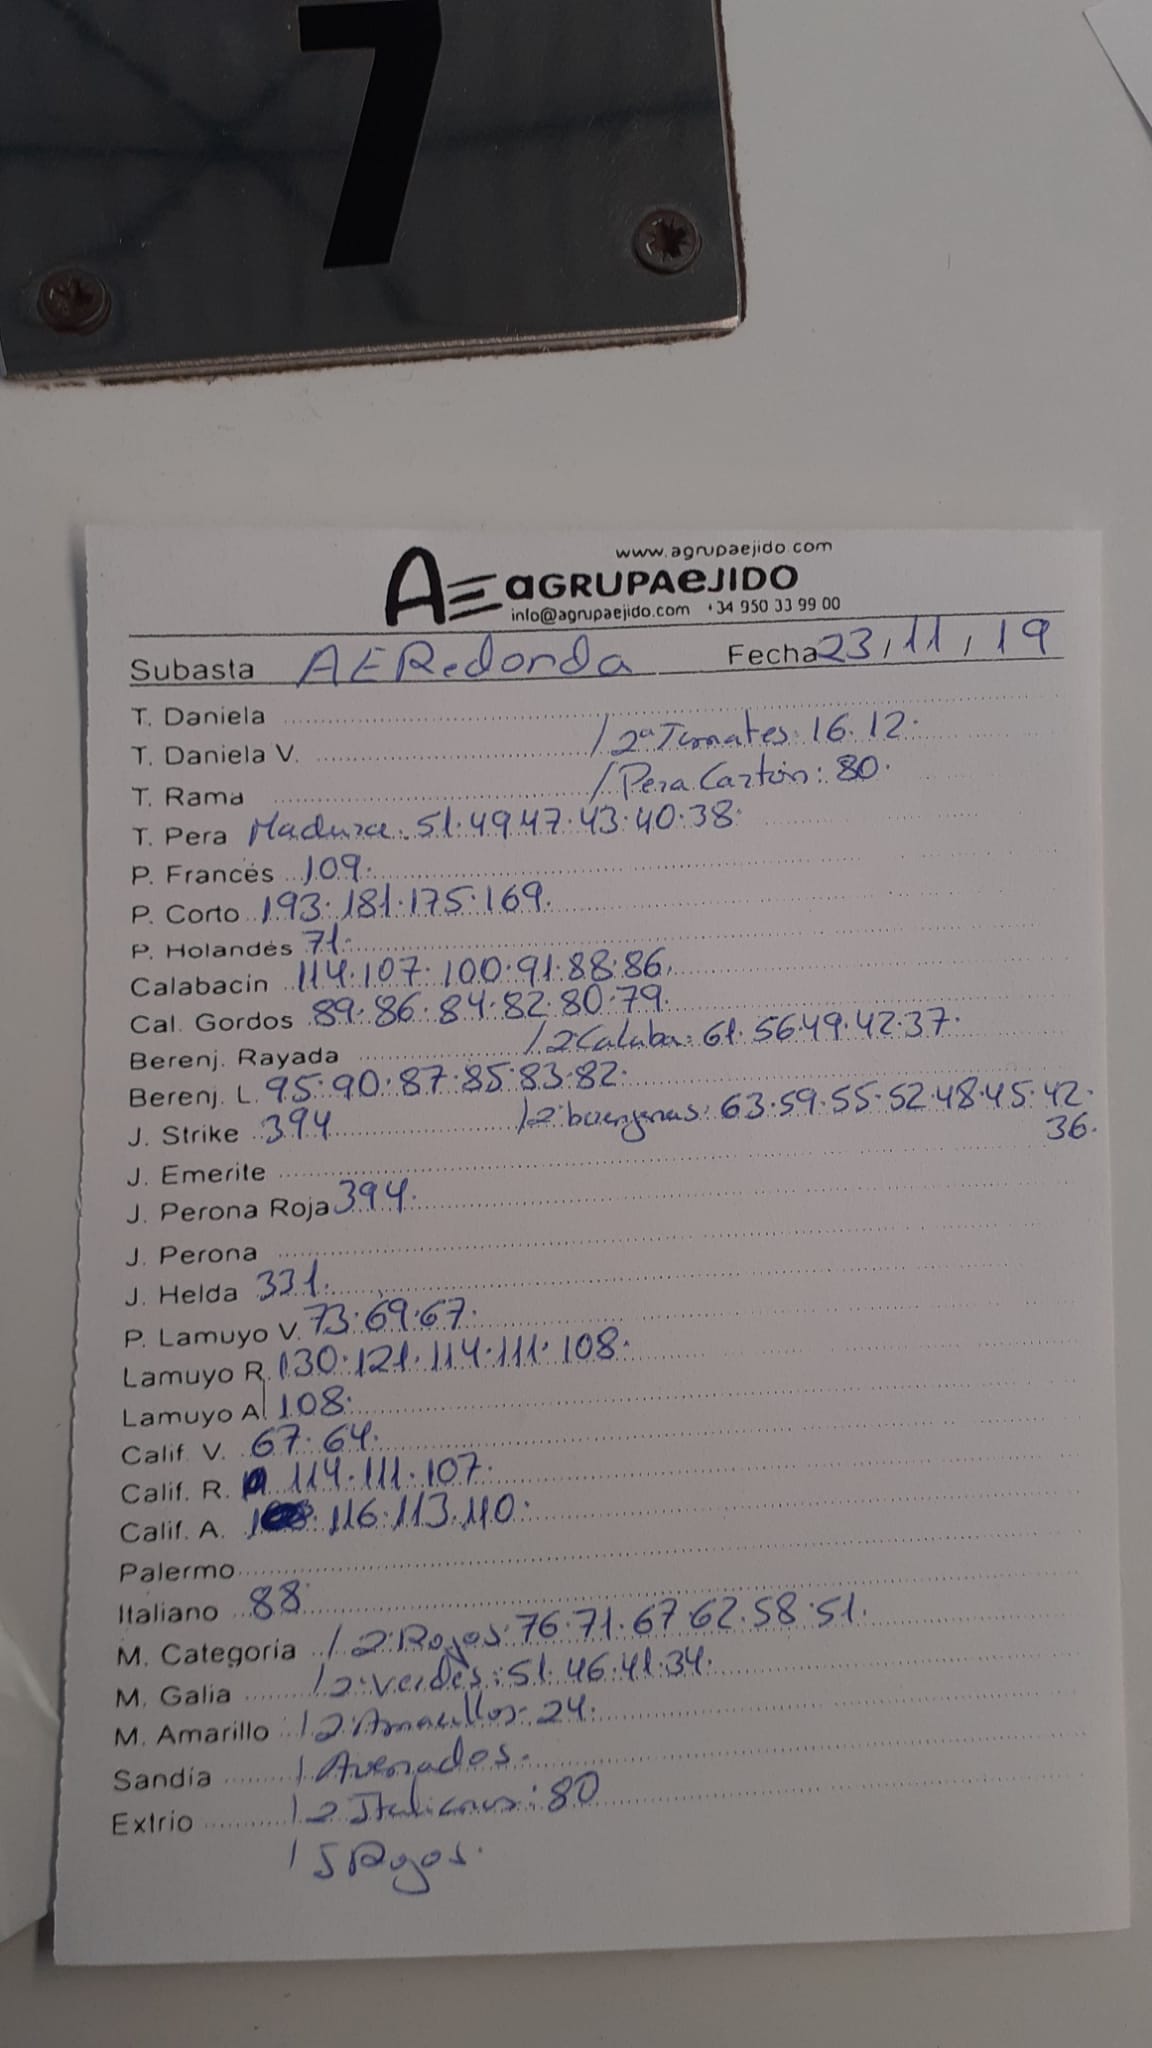 7
www.agrupaejido.com
AE aGRUPAeJIDO
info@agrupaejido.com +34 950 33 99 00
Subasta AERedonda Fecha 23/11/19
T. Daniela
T. Daniela V. / 2ª Tomates: 16. 12.
T. Rama / Pera Cartón: 80.
T. Pera Madura: 51. 49. 47. 43. 40. 38.
P. Francés 109.
P. Corto 193. 181. 175. 169.
P. Holandés 71.
Calabacin 114. 107. 100. 91. 88. 86.
Cal. Gordos 89. 86. 84. 82. 80. 79.
Berenj. Rayada / 2 Calaba: 61. 56. 49. 42. 37.
Berenj. L. 95. 90. 87. 85. 83. 82.
J. Strike 394. / 2 : 63. 59. 55. 52. 48. 45. 42.
36.
J. Emerite
J. Perona Roja 394.
J. Perona
J. Helda 331.
P. Lamuyo V. 73. 69. 67.
Lamuyo R. 130. 121. 114. 111. 108.
Lamuyo A. 108.
Calif. V. 67. 64.
Calif. R. 114. 111. 107.
Calif. A. 116. 113. 110.
Palermo
Italiano 88.
M. Categoría / 2 Rojos: 76. 71. 67 62. 58. 51.
M. Galia / 2 Verdes: 51. 46. 41. 34.
M. Amarillo / 2 Amarillos: 24.
Sandía / Averiados.
Extrio / 2 Italianos: 80
/ 5 Rojos.